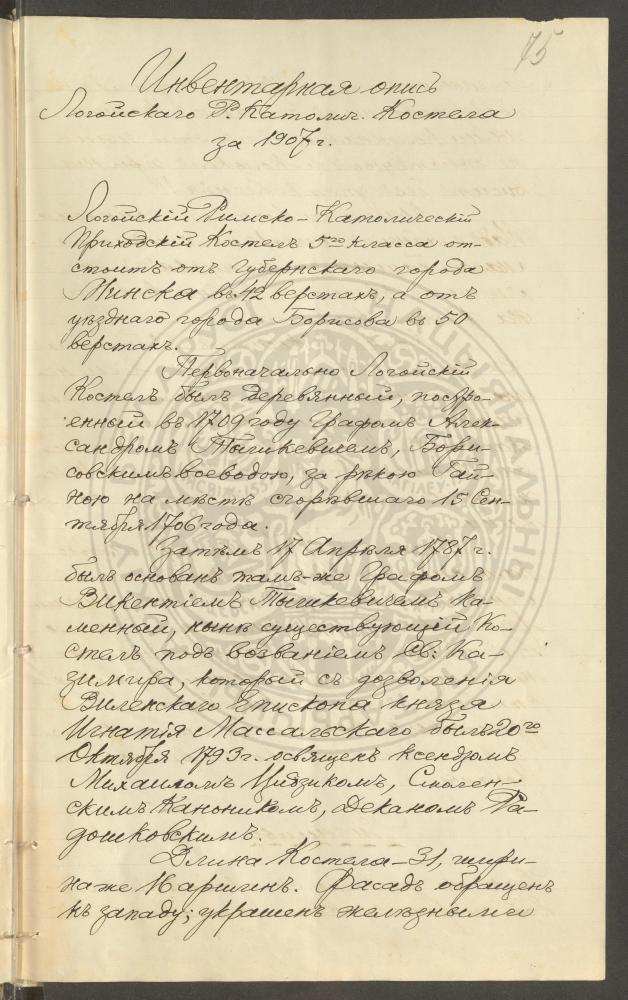 75
Инвентарная опись
Логойскаго Р. Католич. Костела
за 1907 г.
Логойскій Римско-Католическій
Приходскій Костелъ 5го класса от-
стоитъ отъ Губернскаго города
Минска въ 42 верстахъ, а отъ
уѣзднаго города Борисова въ 50
верстахъ.
Первоначально Логойскій
Костелъ былъ деревянный, постро-
енный въ 1709 году Графомъ Алек-
сандромъ Тышкевичемъ, Бори-
совскимъ воеводою, за рѣкою Гай-
ною на мѣстѣ сгорѣвшаго 15 Сен-
тября 1706 года.
Затѣмъ 17 Апрѣля 1787 г.
былъ основанъ тамъ-же Графомъ
Викентіемъ Тышкевичемъ ка-
менный, нынѣ существующій Ко-
стелъ подъ воззваніемъ Св: Ка-
зимира, который съ дозволенія
Виленскаго Епископа князя
Игнатія Массальскаго былъ 20го
Октября 1793 г. освященъ ксендзомъ
Михаиломъ Цидзикомъ, Смолен-
скимъ Каноникомъ, Деканомъ Ра-
дошковскимъ.
Длина Костела - 31, шири-
на же 16 аршинъ. Фасадъ обращенъ
къ западу; украшенъ желѣзными